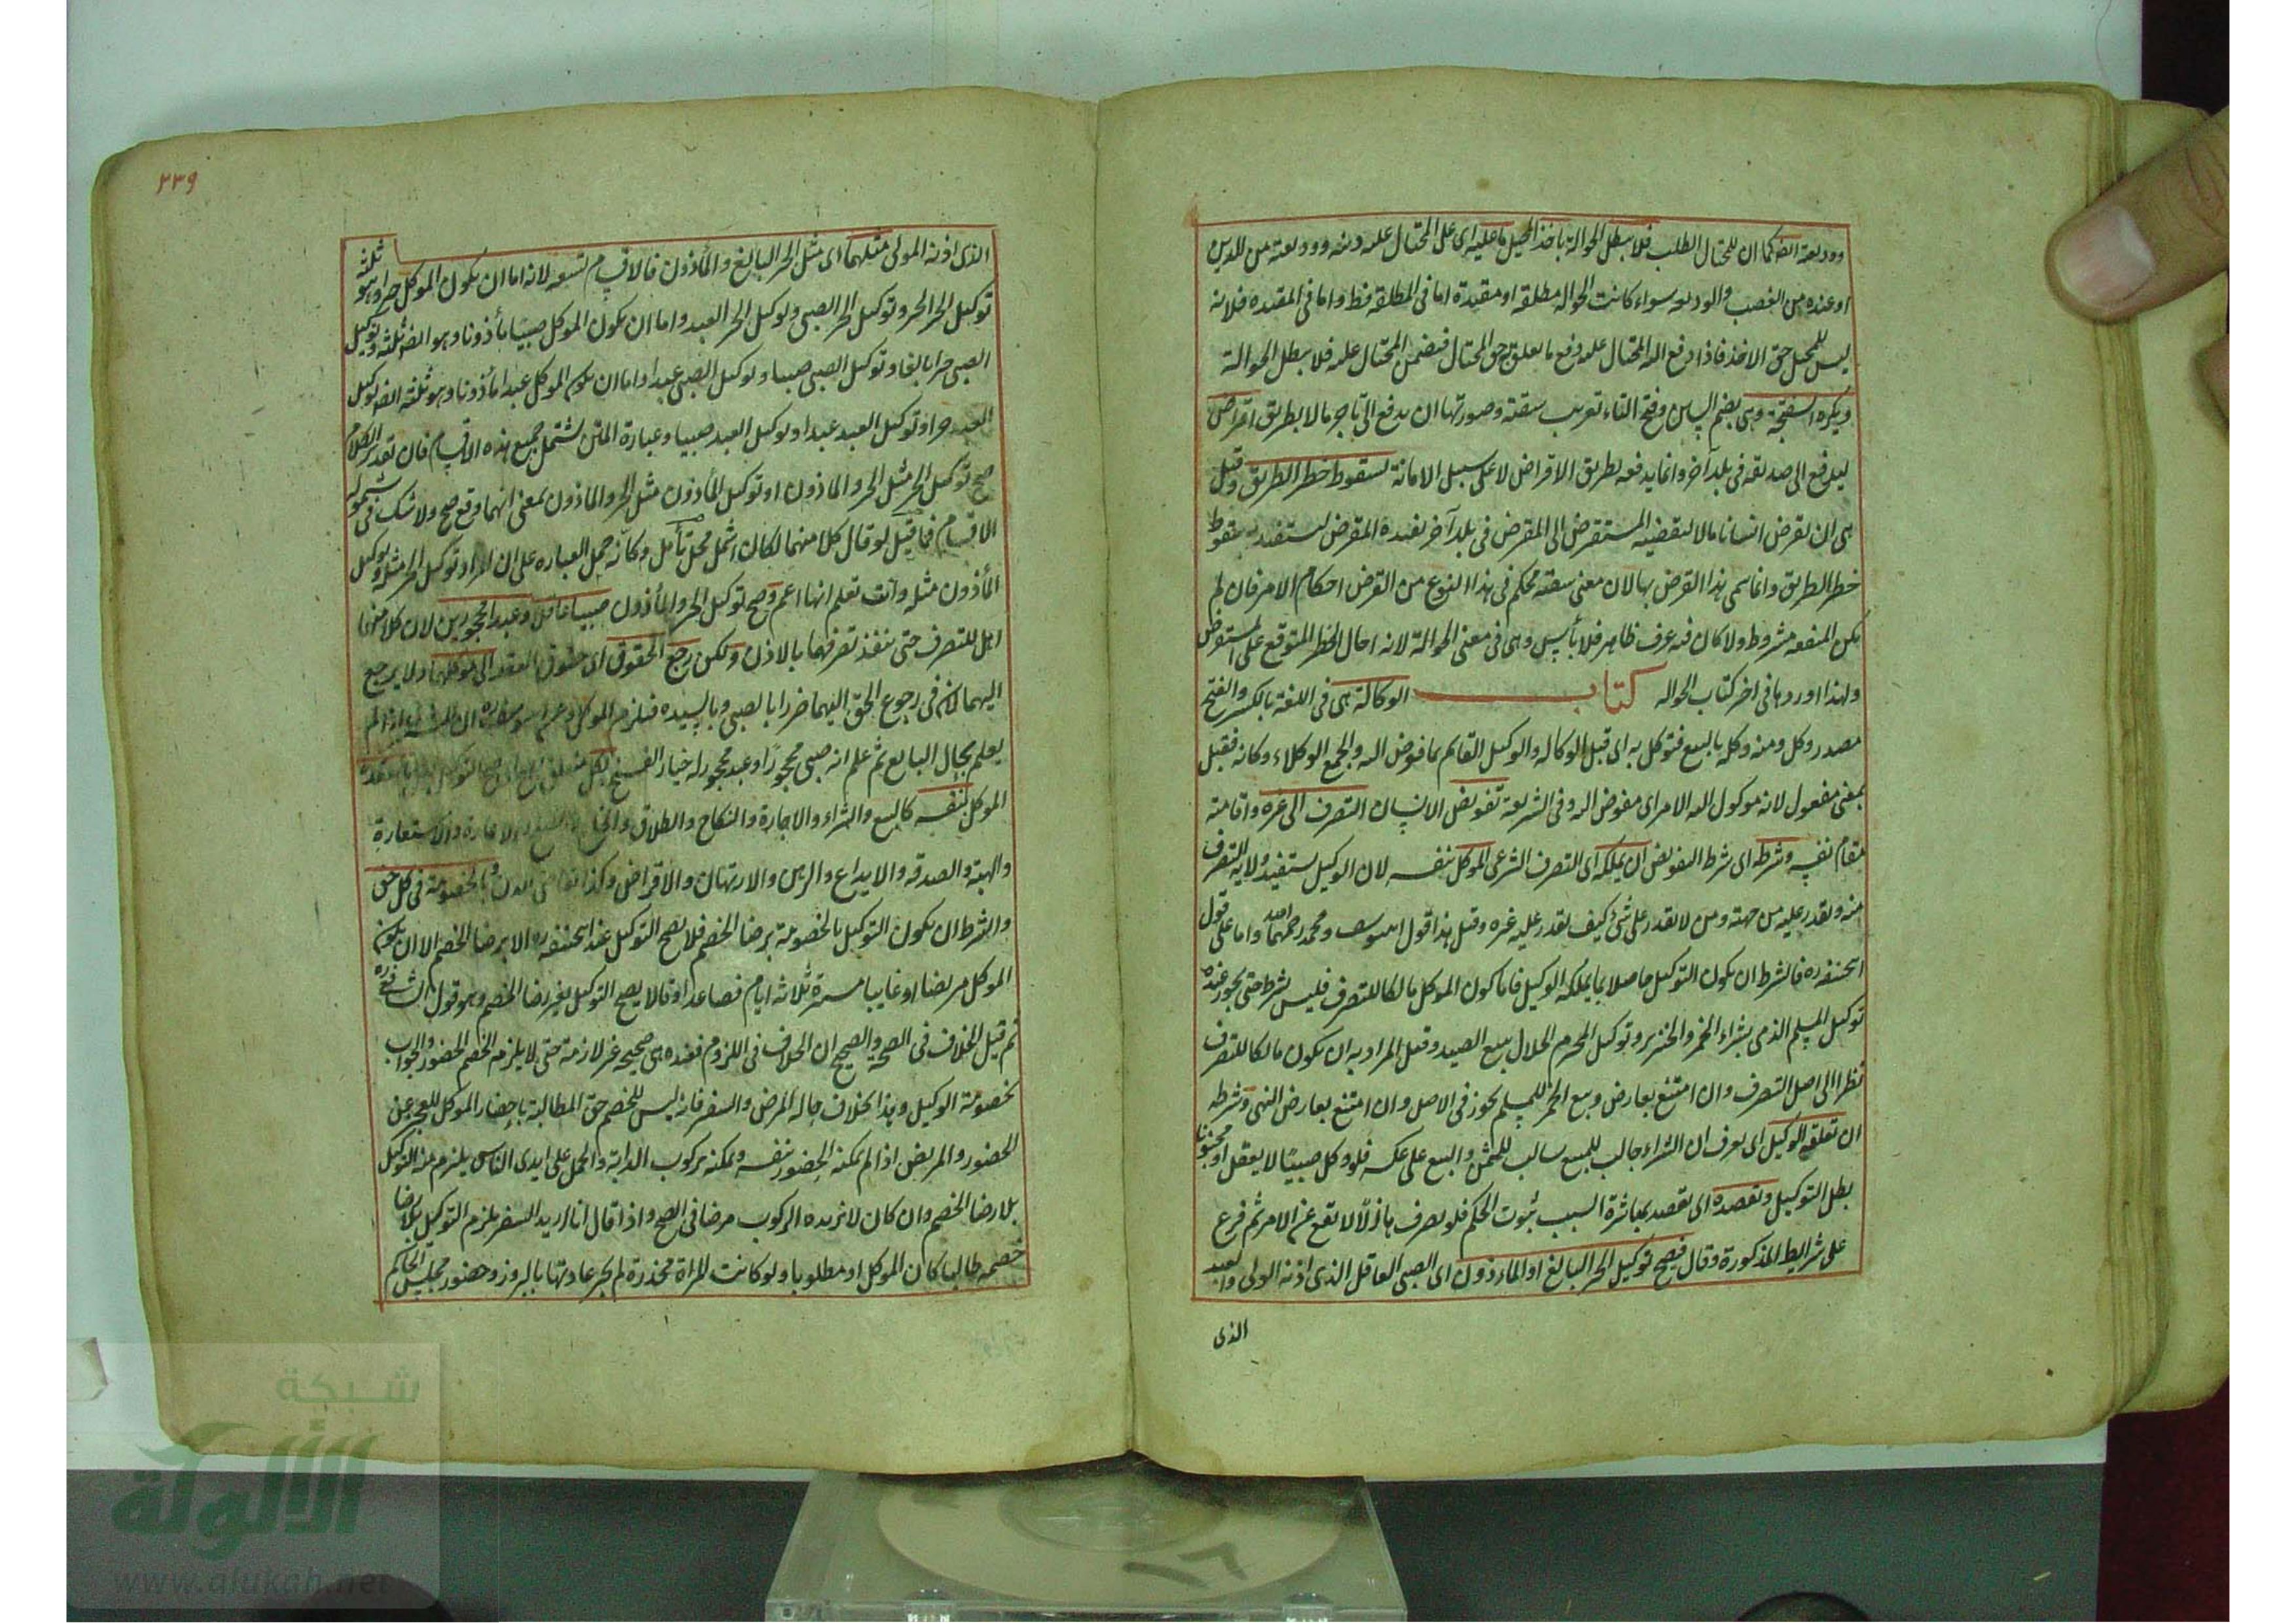 ووديعة ايضا كما ان للمحتال الطلب فلا يبطل الحوالة باخذ المحيل ما عليه اى على المحتال عليه دينه ووديعته من المديون
او عنده من الغصب والوديعة سواء كانت الحوالة مطلقة او مقيدة اما فى المطلقة فظ واما فى المقيده فلانه
ليس للمحيل حق الاخذ فاذا دفع اليه المحتال عليه دفع ما تعلق به حق المحتال فيضمن المحتال عليه فلا يبطل الحوالة
ويكره السفتجة وهى بضم السين وفتح التاء تعريب سفته وصورتها ان يدفع الى تاجر مالا بطريق اقراض
ليدفع الى صديقه فى بلد آخر وانما يدفعه بطريق الاقراض لا على سبيل الامانة لسقوط خطر الطريق وقيل
هى ان يقرض انسانا مالا ليقضيه المستقرض الى المقرض فى بلد آخر يفيده المقرض ليستفيد به سقوط
خطر الطريق وانما سمى هذا القرض بها لان معنى سفته محكم فى هذا النوع من القرض احكام الامر فان لم
يكن المنفعه مشروط ولا كان فيه عرف ظاهر فلا بأس وهى فى معنى الحوالة لانه احال الخطر المتوقع على المستقرض
ولهذا اوردها فى اخر كتاب الحواله كتاب الوكالة هى فى اللغة بالكسر والفتح
مصدر وكل ومنه وكله بالبيع فتوكل به اى قبل الوكاله والوكيل القائم بما فوض اليه والجمع الوكلاء وكانه فعيل
بمعنى مفعول لانه موكول اليه الامر اى مفوض اليه وفى الشريعة تفويض الانسان التصرف الى غيره واقامته
مقام نفسه وشرطه اى شرط التفويض ان يملكه اى التصرف الشرعى الموكل بنفسه لان الوكيل يستفيد ولاية التصرف
منه ويقدر عليه من جهته ومن لا يقدر على شئ كيف يقدر عليه غيره وقيل هذا قول ابييوسف ومحمد رحمهما الله واما على قول
ابيحنيفه ره فالشرط ان يكون التوكيل حاصلا بما يملكه الوكيل فاما كون الموكل مالكا للتصرف فليس بشرط حتى يجوز عنده
توكيل المسلم الذمى بشراء الخمر والخنزير وتوكيل المحرم الحلال ببيع الصيد وقيل المراد به ان يكون مالكا للتصرف
نظرا الى اصل التصرف وان امتنع بعارض وبيع الخمر للمسلم يجوز فى الاصل وان امتنع بعارض النهى وشرطه
ان يعقله الوكيل اى يعرف ان الشراء جالب للمبيع سالب للثمن والبيع على عكسه فلو وكل صبيا لا يعقل او مجنونا
بطل التوكيل ويقصده اى يقصد بمباشرة السبب ثبوت الحكم فلو تصرف هازلا لا يقع عن الامر ثم فرع
على شرايط المذكورة وقال فيصح توكيل الحر البالغ او الماءذون اى الصبى العاقل الذى اذنه الولى والعبد
الذى
٢٣٩
الذى اذنه المولى مثلهما اى مثل الحر البالغ والمأذون فالاقسام تسعه لانه اما ان يكون الموكل حرا وهو ثلثه
توكيل الحر الحر وتوكيل الحر الصبى وتوكيل الحر العبد واما ان يكون الموكل صبيا مأذونا وهو ايضا ثلثه توكيل
الصبى حرا بالغا وتوكيل الصبى صبيا وتوكيل الصبى عبدا واما ان يكون الموكل عبدا مأذونا وهو ثلثه ايضا توكيل
العبد حرا وتوكيل العبد عبدا وتوكيل العبد صبيا وعبارة المتن يشتمل جميع هذه الاقسام فان تقدير الكلام
صح توكيل الحر مثل الحر والماذون او توكيل المأذون مثل الحر والماذون بمعنى انهما وقع صح ولا شك فى شموله
الاقسام فما قيل لو قال كلا منهما لكان اشمل محل تأمل وكأنه حمل العباره على ان المراد توكيل الحر مثله وتوكيل
المأذون مثله وانت تعلم انها اعم وصح توكيل الحر والمأذون صبيا عاقلا وعبدا محجورين لان كلا منهما
اهل للتصرف حتى ينفذ تصرفهما بالاذن ولكن رجع الحقوق اى حقوق العقد الى موكلهما ولا يرجع
اليهما لان فى رجوع الحق اليهما ضررا بالصبى وبالسيده فيلزم الموكل وعن ابييوسف ره ان المشترى اذا لم
يعلم بحال البايع ثم علم انه صبى محجورا او عبد محجور له خيار الفسخ بكل متعلق بصح اى صح التوكيل بكل ما يعقده
الموكل بنفسه كالبيع والشراء والاجارة والنكاح والطلاق والخلع والصلح والاعارة والاستعارة
والهبة والصدقه والايداع والرهن والارتهان والاقراض وكذا تقاضى الدين وبالخصومة فى كل حق
والشرط ان يكون التوكيل بالخصومة برضا الخصم فلا يصح التوكيل عند ابيحنيفه ره الا برضا الخصم الا ان يكون
الموكل مريضا او غايبا مسيرة ثلاثة ايام فصاعدا وقالا يصح التوكيل بغير رضا الخصم وهو قول الشافعى ره
ثم قيل الخلاف فى الصحة والصحيح ان الخلاف فى اللزوم فعنده هى صحيحة غير لازمة حتى لا يلزم الخصم الحضور والجواب
بخصومة الوكيل وهذا بخلاف حالة المرض والسفر فانه ليس للخصم حق المطالبة باحضار الموكل للعجز عن
الحضور والمريض اذا لم يمكنه الحضور بنفسه ويمكنه بركوب الدابة والحمل على ايدى الناس يلزم منه التوكيل
بلا رضا الخصم وان كان لا يزيده الركوب مرضا فى الصح واذا قال انا اريد السفر يلزم التوكيل بلا رضا
خصمه طالبا كان الموكل او مطلوبا ولو كانت المراة مخدرة لم يجر عادتها بالبروز وحضور مجلس الحاكم
شبكة
الألوكة
www.alukah.net